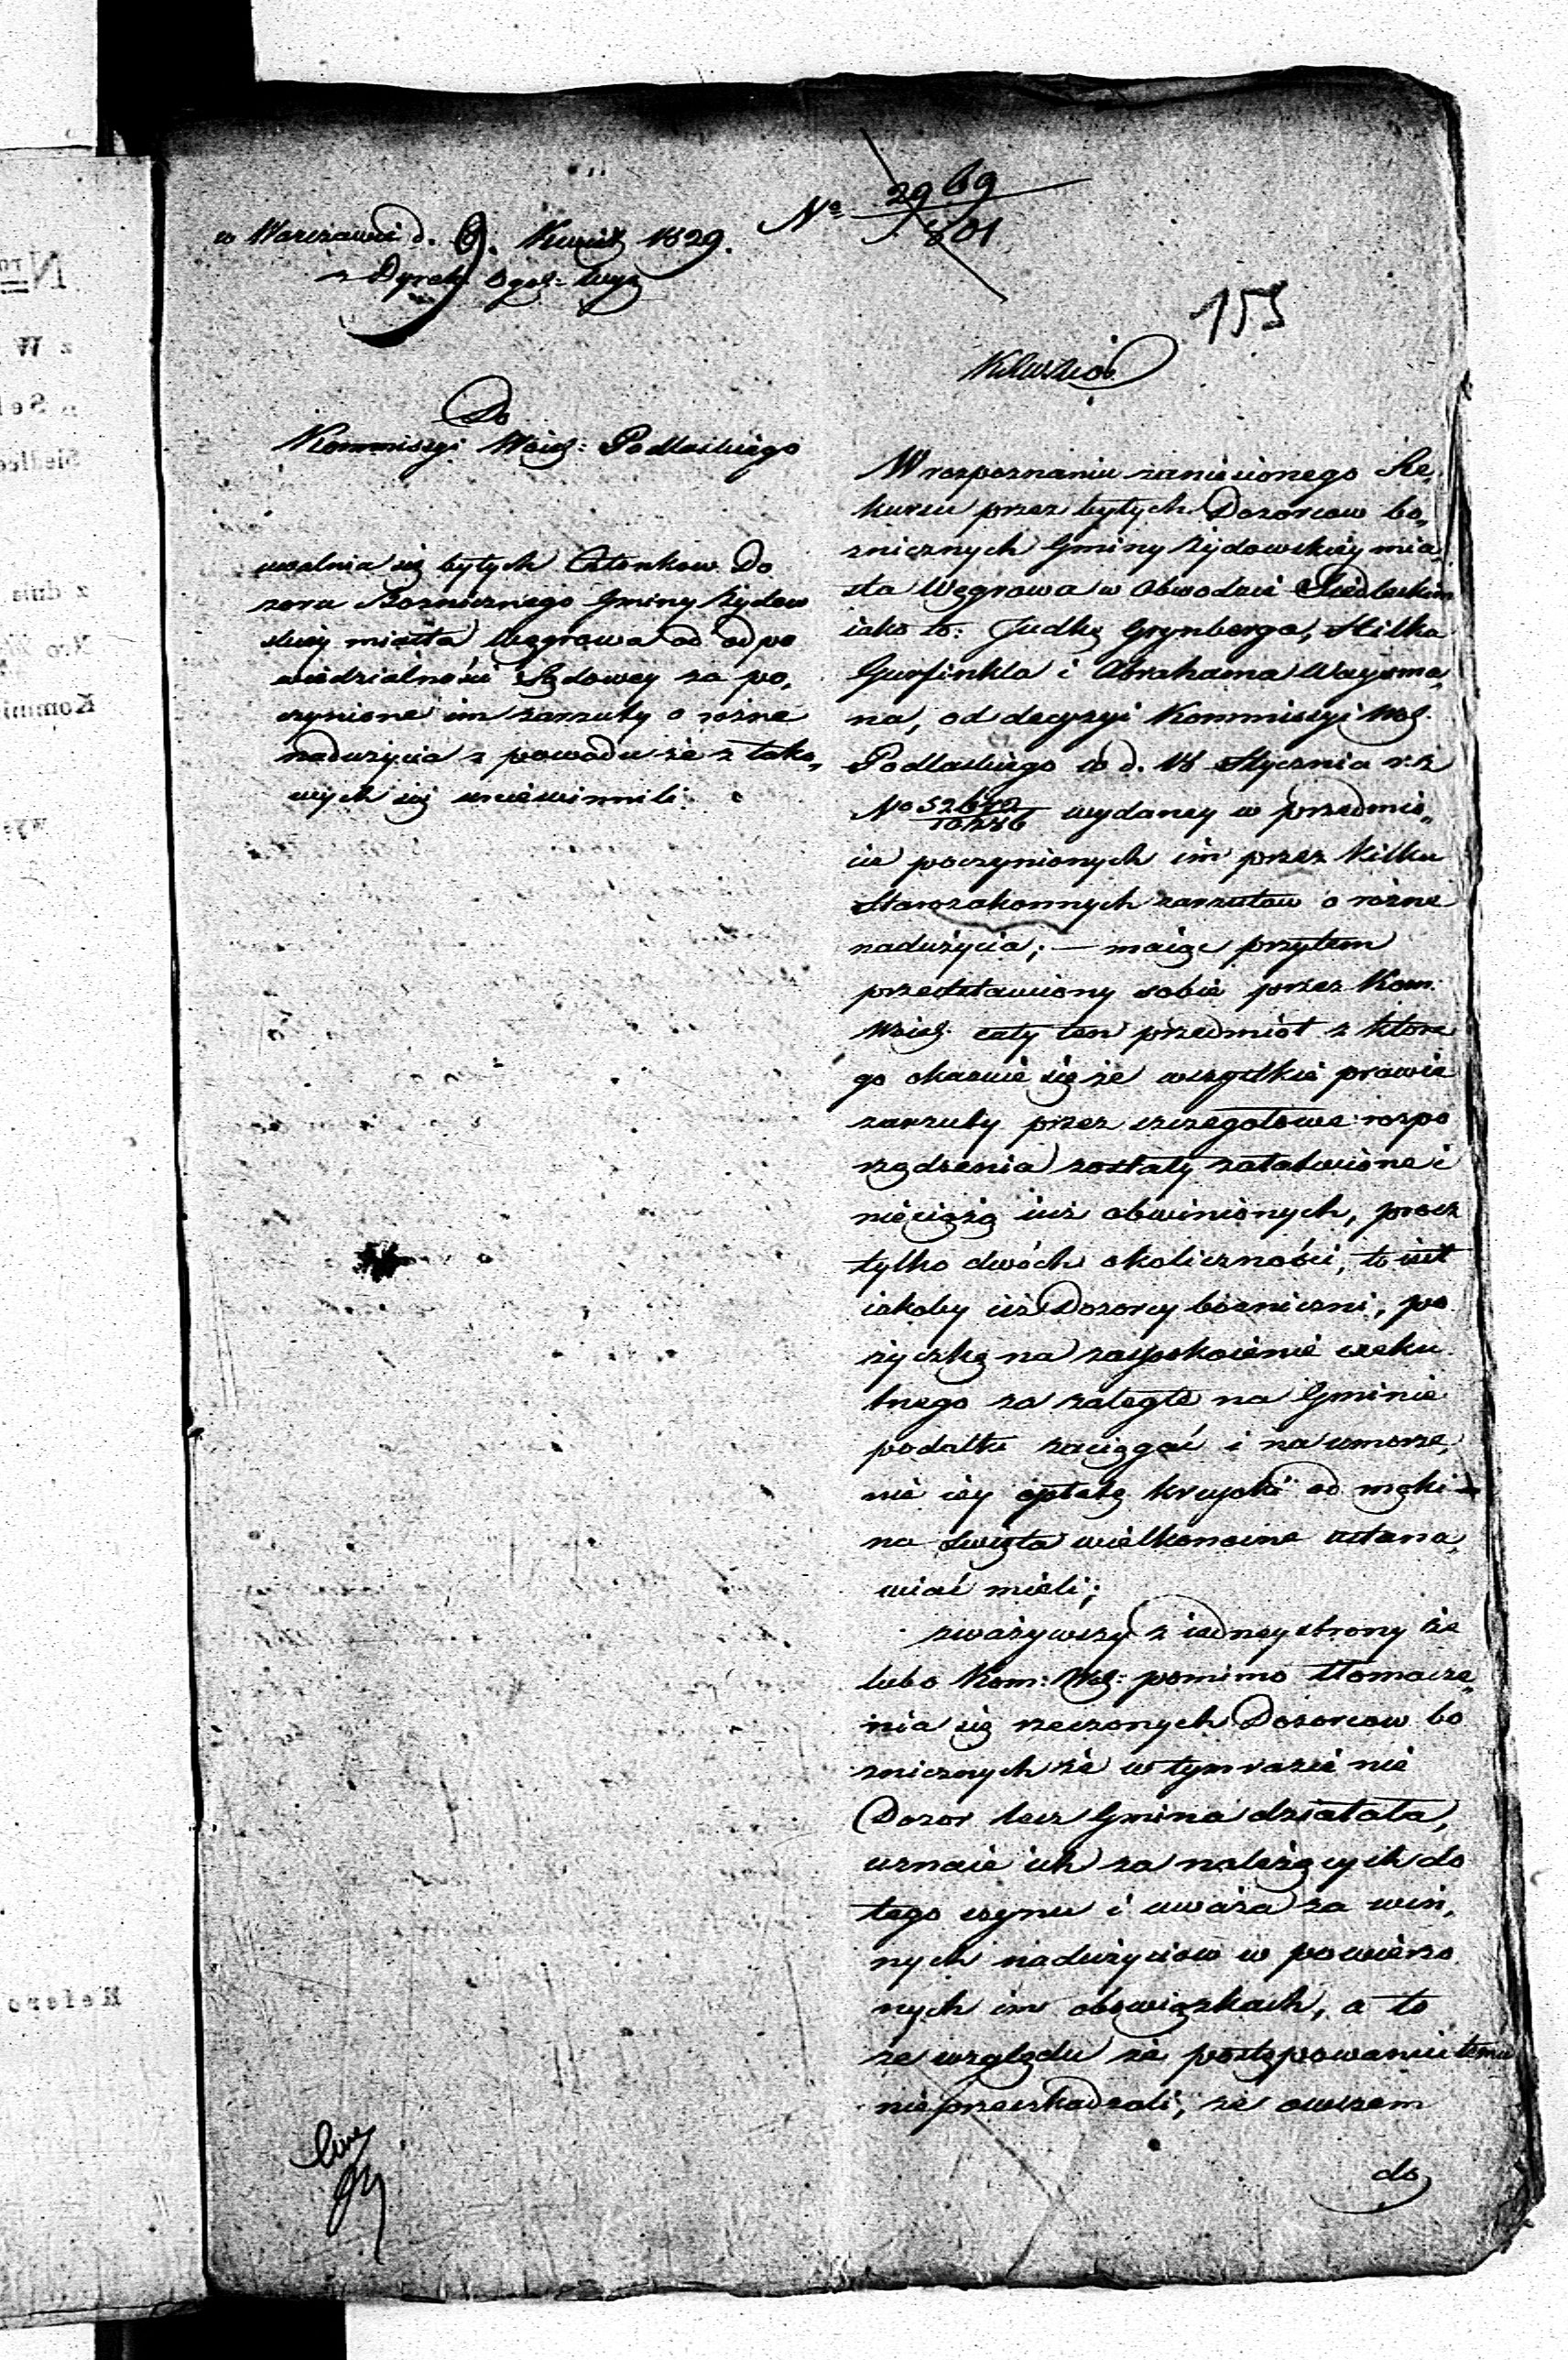 w Warszawie d. 9. Kwiet 1829.
z Dyrek. Ogol:
No 2969
801
153
Do
Kommissyi Woiew: Podlaskiego
uwalnia się bytych Członkow Do
zoru Boznicznego Gminy Żydow
skiey miasta Węgrowa od odpo
wiedzialności Sądowey za po„
czynione im zarzuty o rożne
nadużycia z powodu że z tako„
wych się uniewinnili.
W rozpoznaniu zaniesionego Re„
kursu przez bytych Dozorcow bo„
zniczných Gminy Żydowskiey mia
sta Węgrowa w Obwodzie Siedleckim
iako to: Judkę Grynberga, Hilka
Gurfinkla i Abrahama Waysma„
na, od decyzyi Kommissyi Wol.
Podlaskiego w d. 18 Stycznia r. z
No 52642
wydaney w przedmio„
cie poczynionych im przez kilku
Starozakonnych zarzutow o rożne
nadużycia; — maiąc przytem
przedstawiony sobie przez Kom.
Woiew. cały ten przedmiot z ktore
go okazuie się że wszystkie prawie
zarzuty przez szczegołowe rozpo
rządzenia zostały załatwione i
nieciążą iuż obwinionych, procz
tylko dwóch okoliczności, to iest
iakoby iż Dozorcy bozniczni, po
życzkę na zaspokoienie exeku
tnego za zaległe na Gminie
podatki zaciągać i na umorze„
nie iey opłatę krupki od mąki
na święta wielkanocne ustana„
wiać mieli;
zważywszy z iedney strony że
lubo Kom: Woj: pomimo tłomacze„
nia się rzeczonych Dozorcow bo
znicznych że w tym razie nie
Dozor lecz Gmina działała,
uznaie ich za należących do
tego czynu i uważa za win„
nych nadużyciow w powierzo
nych im obowiązkach, a to
ze względu że postępowaniu temu
nieprzeszkadzali, że owszem
do